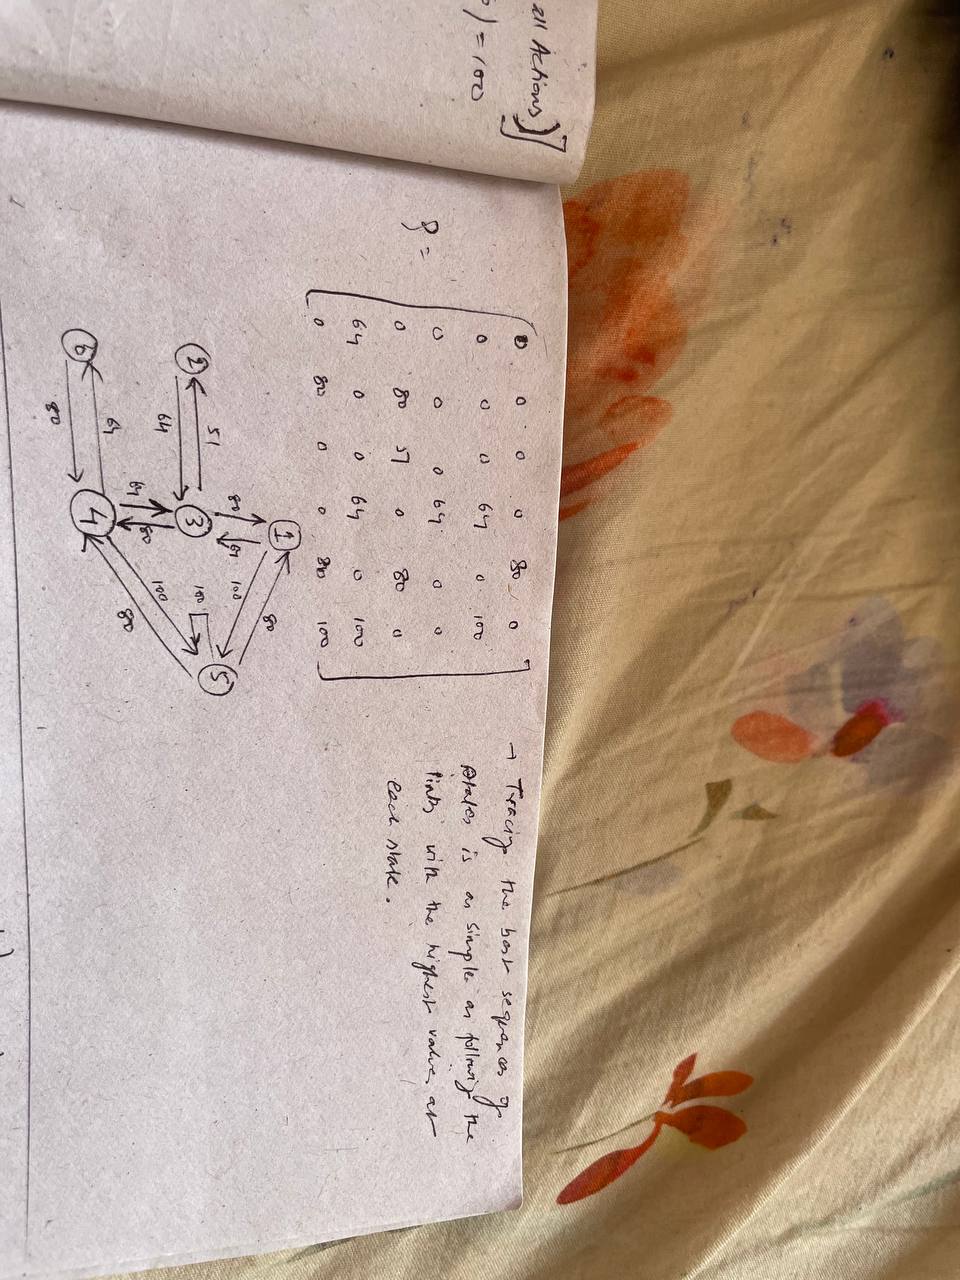 all Actions)]
) = 100
0 0 0 0 80 0
0 0 0 64 0 100
0 0 0 64 0 0
Q = 0 80 51 0 80 0
64 0 0 64 0 100
0 80 0 0 80 100
→ Tracing the best sequences of
states is as simple as following the
links with the highest values at
each state.
1
80
80 64 100
51
2 3 5
64
100
64 80 100
64
80
6 4
80